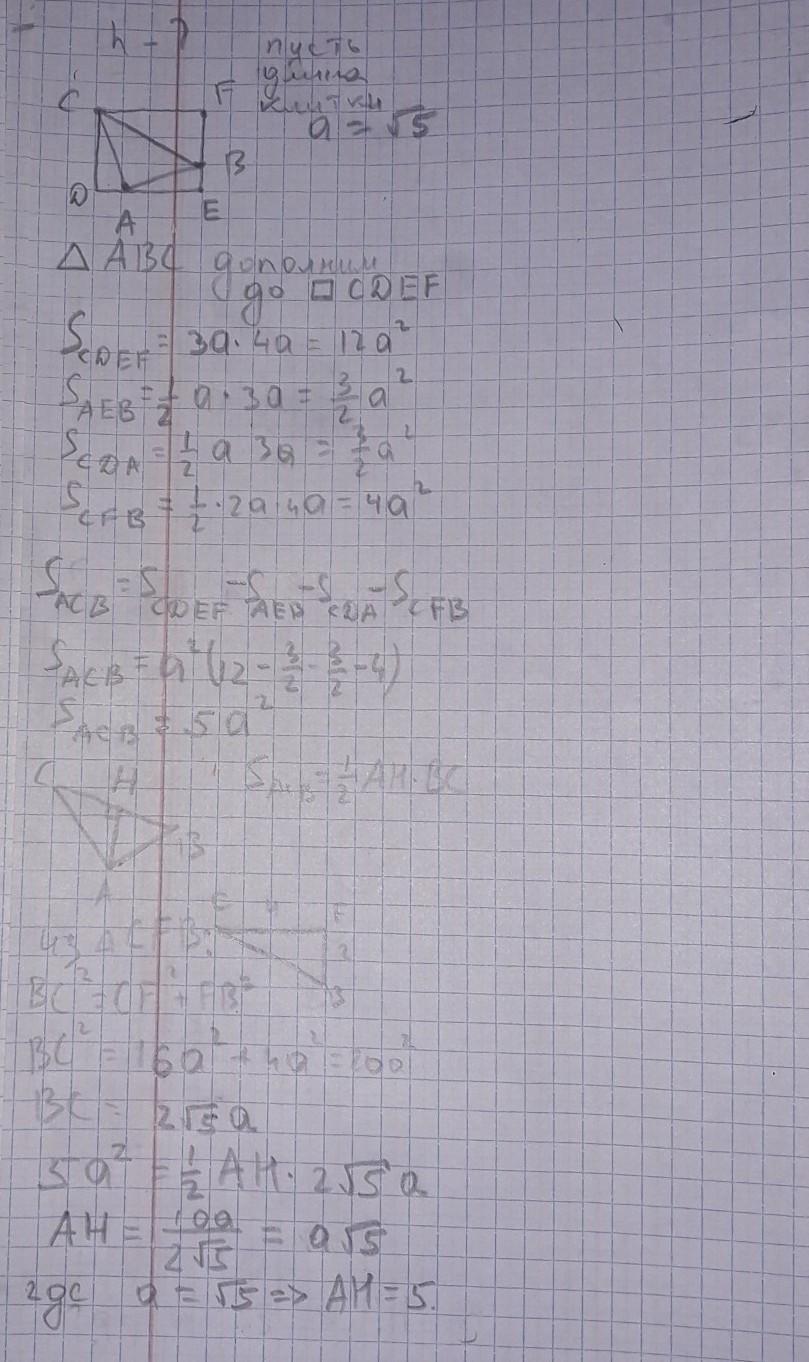 h - ?
пусть
длина
клитки
a = √5
C F
B
D A E
△ ABC дополним
до ▭ CDEF
S_CDEF = 3a·4a = 12a²
S_AEB = 1/2 a·3a = 3/2 a²
S_CDA = 1/2 a 3a = 3/2 a²
S_CFB = 1/2·2a·4a = 4a²
S_ACB = S_CDEF - S_AEB - S_CDA - S_CFB
S_ACB = a²(12 - 3/2 - 3/2 - 4)
S_ACB = 5a²
C H S_ACB = 1/2 AH·BC
B
A
из △ CFB: C 4 F
2
B
BC² = CF² + FB²
BC² = 16a² + 4a² = 20a²
BC = 2√5 a
5a² = 1/2 AH · 2√5 a
AH = 10a/2√5 = a√5
где a = √5 => AH = 5.